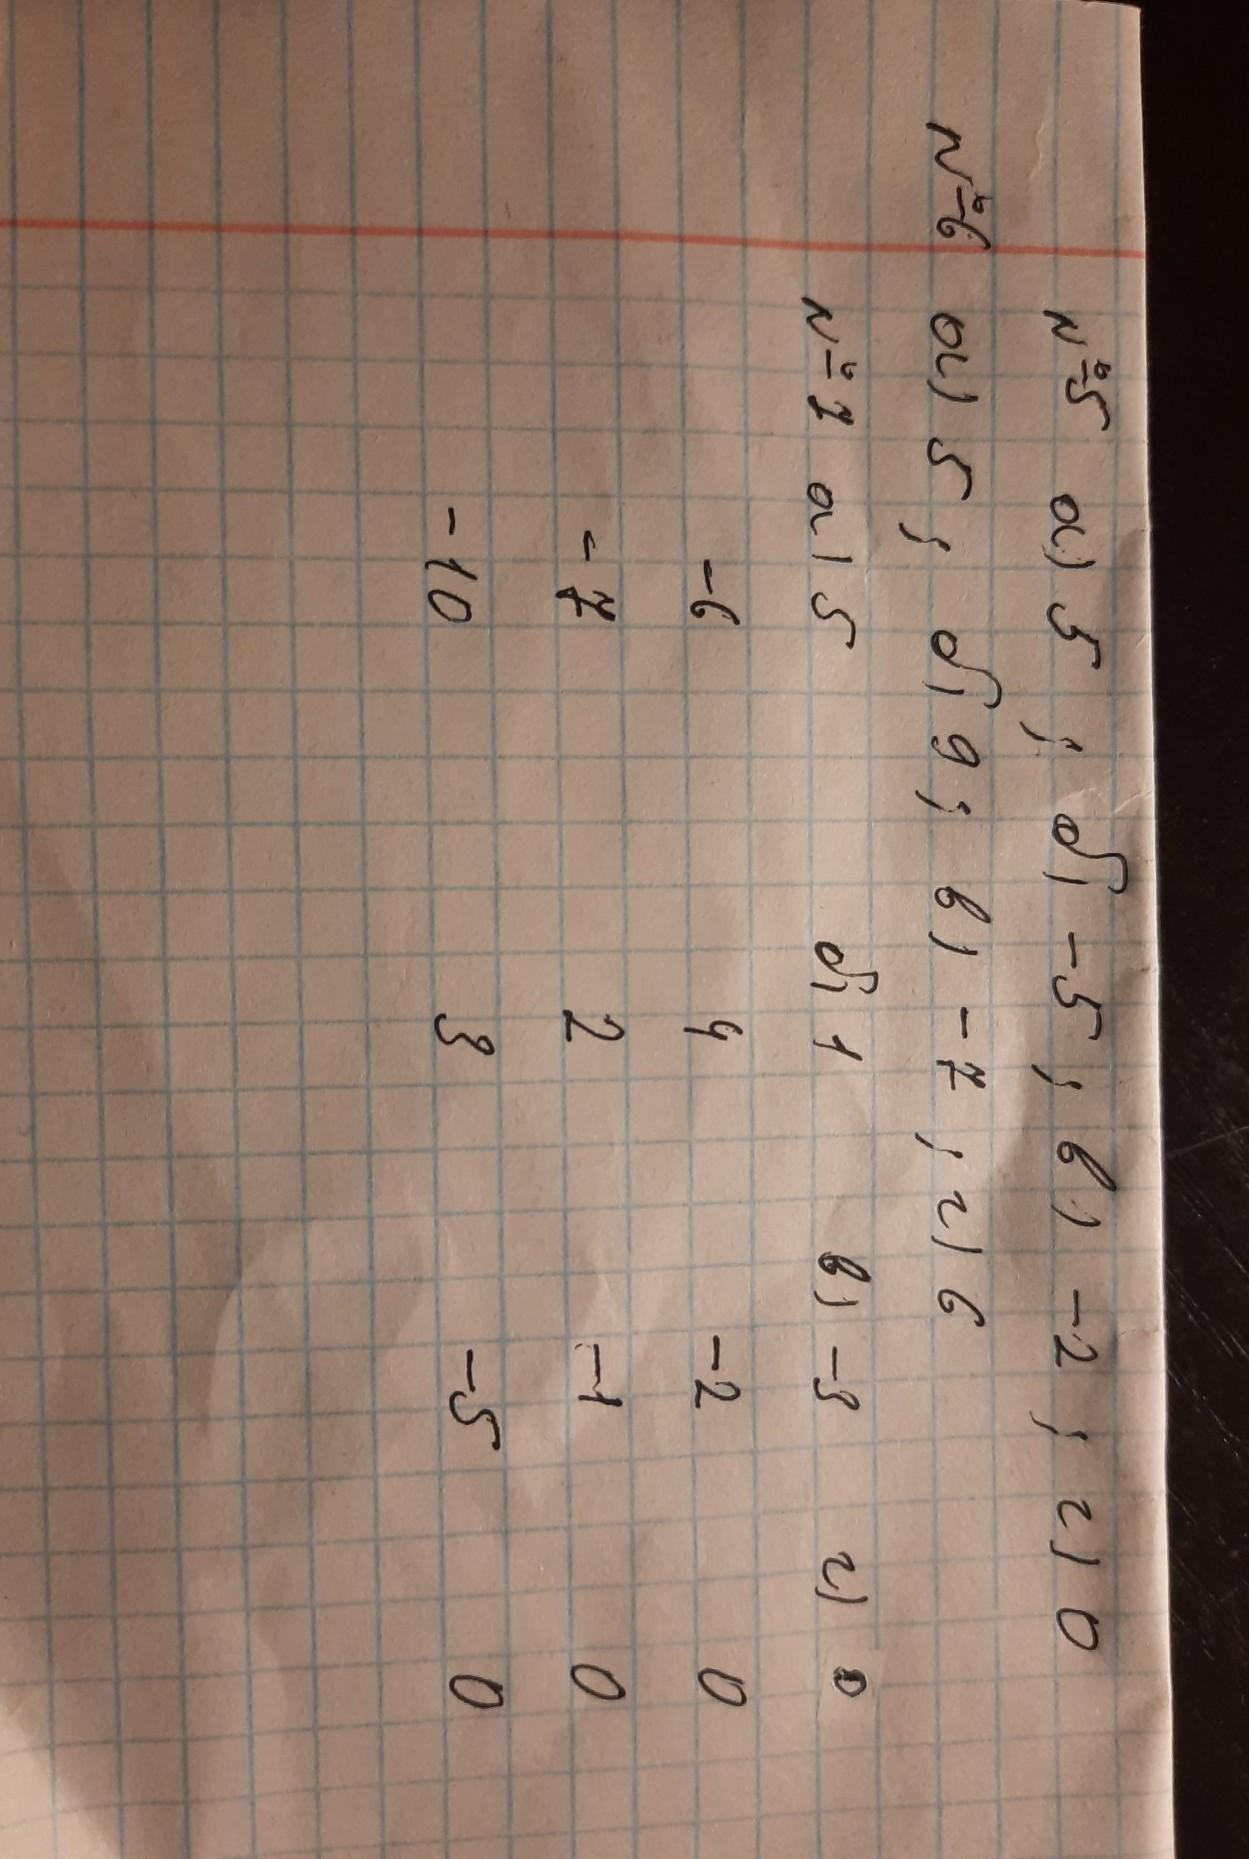 №5 а) 5 ; б) -5 ; в) -2 ; г) 0
№6 а) 5 ; б) 9 ; в) -7 ; г) 6
№1 а) 5 б) 1 в) -3 г) 0
-6 4 -2 0
-7 2 -1 0
-10 3 -5 0